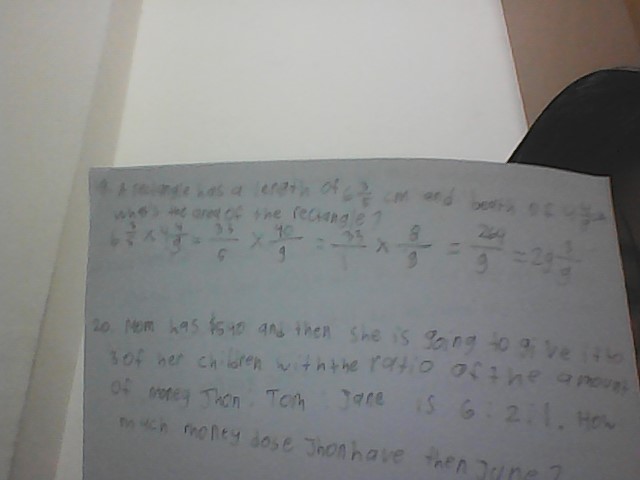 9. A rectangle has a length of 6 3/5 cm and beath of 4 4/9 cm
whts the area of the rectangle?
6 3/5 × 4 4/9 = 33/5 × 40/9 = 33/1 × 8/9 = 264/9 = 29 3/9
20. Mom has $540 and then she is going to give it to
3 of her children with the ratio of the amount
of money Jhon : Tom : Jane is 6 : 2 : 1. How
much money dose Jhon have then June?